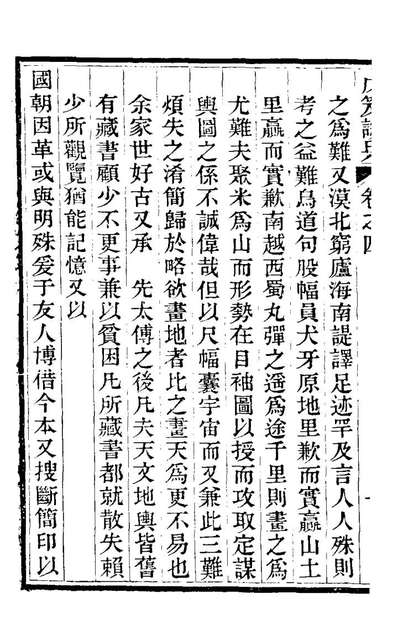 卷之四
之爲難又漠北窮廬海南諟譯足迹罕及言人人殊則
考之益難鳥道句股幅員犬牙原地里歉而實贏山土
里贏而實歉南越西蜀丸彈之遥爲途千里則畫之爲
尤難夫聚米爲山而形勢在目袖圖以授而攻取定謀
輿圖之係不誠偉哉但以尺幅囊宇宙而又兼此三難
煩失之淆簡歸於略欲畫地者比之畫天爲更不易也
余家世好古又承 先太傅之後凡夫天文地輿皆舊
有藏書顧少不更事兼以貧困凡所藏書都就散失賴
少所觀覽猶能記憶又以
國朝因革或與明殊爰于友人博借今本又搜斷簡印以